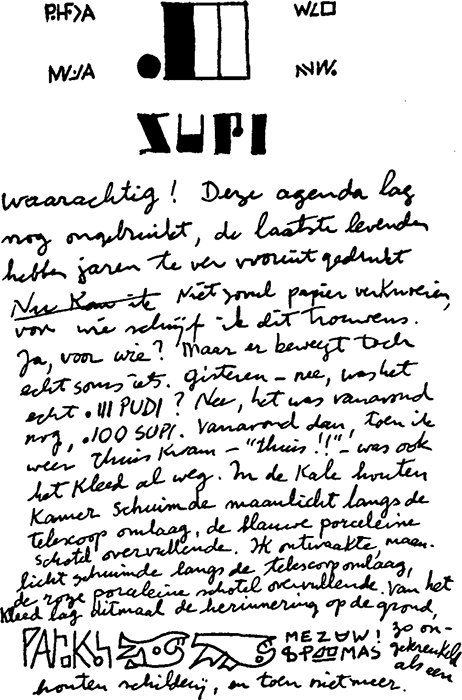 SUPI
waarachtig! Deze agenda lag
nog ongebruikt, de laatste levenden
hebben jaren te ver vooruit gedrukt
Nu kan ik Niet zoveel papier verknoeien,
voor wie schrijf ik dit trouwens.
Ja, voor wie? Maar er beweegt toch
echt soms iets. Gisteren – nee, was het
echt .III PUDI? Nee, het was vanavond
nog, .100 SUPI. Vanavond dan, toen ik
weer thuis kwam – "thuis!!" – was ook
het kleed al weg. In de kale houten
kamer schuimde maanlicht langs de
telescoop omlaag, de blauwe porceleine
schotel overvullende. Ik ontwaakte, maan-
licht schuimde langs de telescoop omlaag,
de roze porceleine schotel overvullende. Van het
kleed lag ditmaal de herinnering op de grond,
MEZOW! zo on-
MAS gekreukeld
als een
houten schilderij, en toen niet meer.